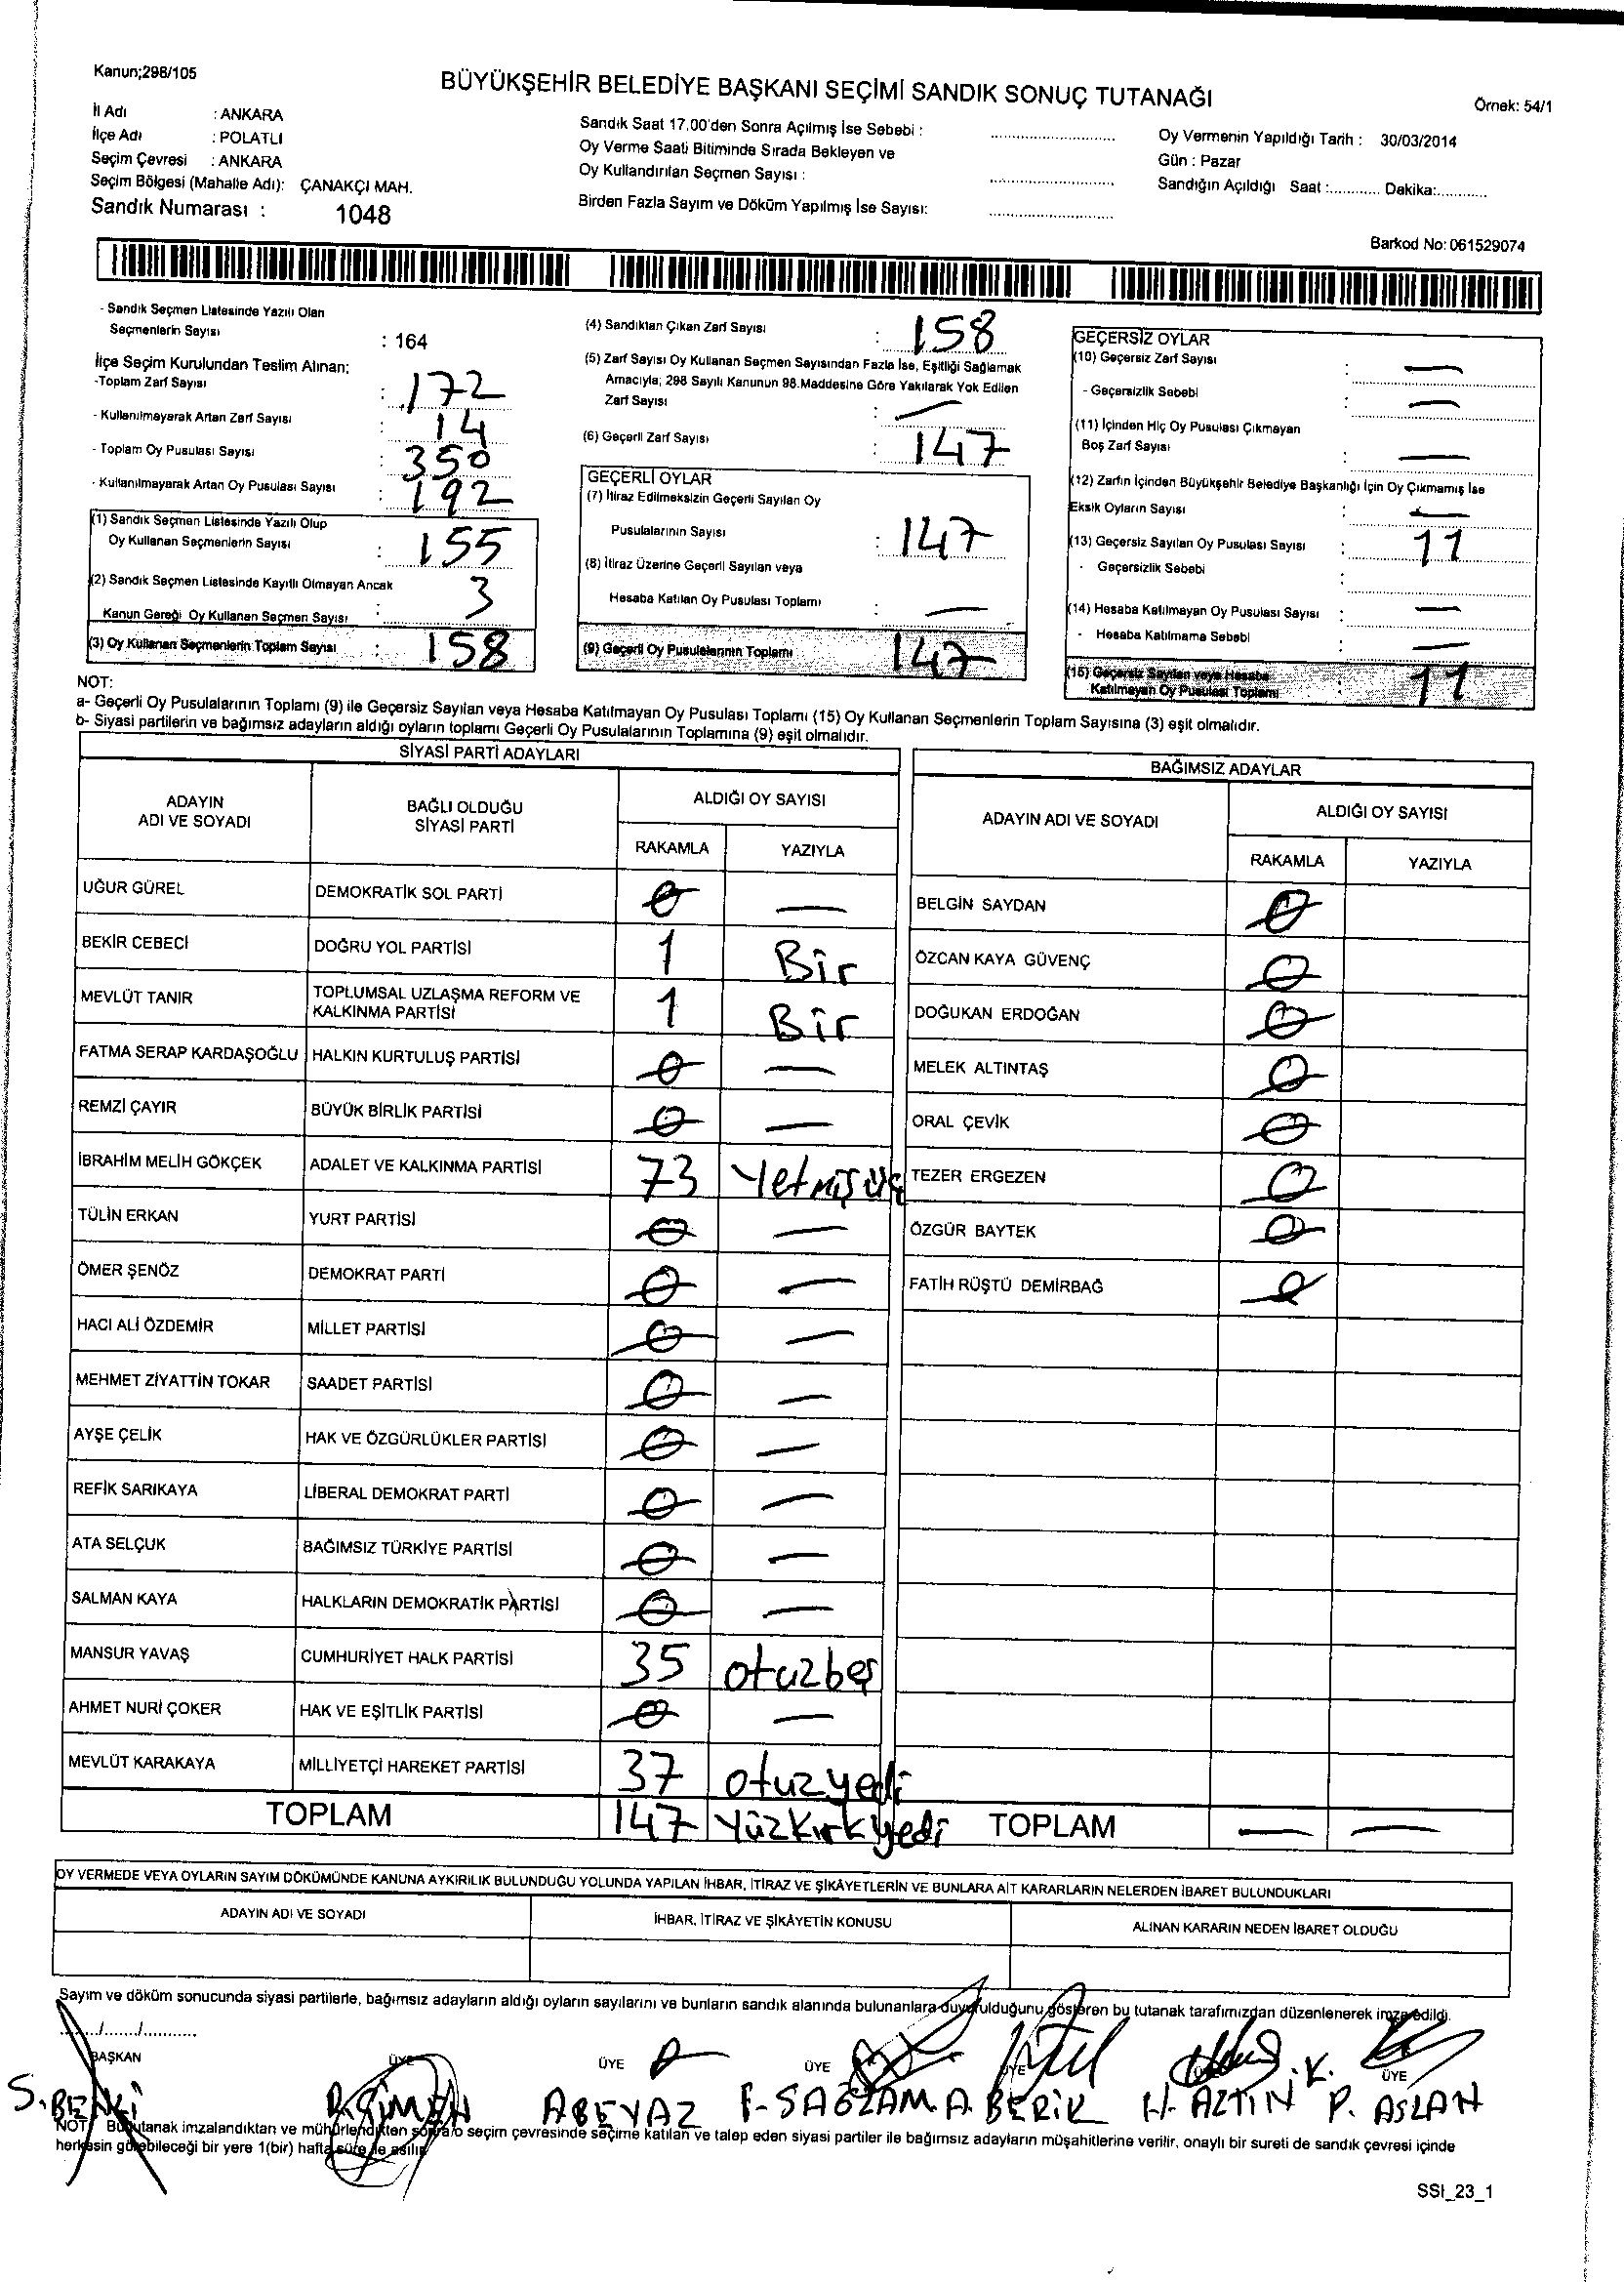 Kanun;298/105
BÜYÜKŞEHİR BELEDİYE BAŞKANI SEÇİMİ SANDIK SONUÇ TUTANAĞI
Örnek: 54/1
İl Adı : ANKARA
İlçe Adı : POLATLI
Seçim Çevresi : ANKARA
Seçim Bölgesi (Mahalle Adı): ÇANAKÇI MAH.
Sandık Numarası : 1048
Sandık Saat 17.00'den Sonra Açılmış İse Sebebi : ....................
Oy Verme Saati Bitiminde Sırada Bekleyen ve
Oy Kullandırılan Seçmen Sayısı : ....................
Birden Fazla Sayım ve Döküm Yapılmış İse Sayısı: ....................
Oy Vermenin Yapıldığı Tarih : 30/03/2014
Gün : Pazar
Sandığın Açıldığı Saat :............ Dakika:............
Barkod No: 061529074
- Sandık Seçmen Listesinde Yazılı Olan
Seçmenlerin Sayısı : 164
İlçe Seçim Kurulundan Teslim Alınan;
-Toplam Zarf Sayısı : 172
- Kullanılmayarak Artan Zarf Sayısı : 14
- Toplam Oy Pusulası Sayısı : 350
- Kullanılmayarak Artan Oy Pusulası Sayısı : 192
(1) Sandık Seçmen Listesinde Yazılı Olup
Oy Kullanan Seçmenlerin Sayısı : 155
(2) Sandık Seçmen Listesinde Kayıtlı Olmayan Ancak
Kanun Gereği Oy Kullanan Seçmen Sayısı : 3
(3) Oy Kullanan Seçmenlerin Toplam Sayısı : 158
(4) Sandıktan Çıkan Zarf Sayısı : 158
(5) Zarf Sayısı Oy Kullanan Seçmen Sayısından Fazla İse, Eşitliği Sağlamak
Amacıyla; 298 Sayılı Kanunun 98.Maddesine Göre Yakılarak Yok Edilen
Zarf Sayısı : —
(6) Geçerli Zarf Sayısı : 147
GEÇERLİ OYLAR
(7) İtiraz Edilmeksizin Geçerli Sayılan Oy
Pusulalarının Sayısı : 147
(8) İtiraz Üzerine Geçerli Sayılan veya
Hesaba Katılan Oy Pusulası Toplamı : —
(9) Geçerli Oy Pusulalarının Toplamı : 147
GEÇERSİZ OYLAR
(10) Geçersiz Zarf Sayısı : —
- Geçersizlik Sebebi : —
(11) İçinden Hiç Oy Pusulası Çıkmayan
Boş Zarf Sayısı : —
(12) Zarfın İçinden Büyükşehir Belediye Başkanlığı İçin Oy Çıkmamış İse
Eksik Oyların Sayısı : —
(13) Geçersiz Sayılan Oy Pusulası Sayısı : 11
- Geçersizlik Sebebi :
(14) Hesaba Katılmayan Oy Pusulası Sayısı : —
- Hesaba Katılmama Sebebi : —
(15) Geçersiz Sayılan veya Hesaba
Katılmayan Oy Pusulası Toplamı : 11
NOT:
a- Geçerli Oy Pusulalarının Toplamı (9) ile Geçersiz Sayılan veya Hesaba Katılmayan Oy Pusulası Toplamı (15) Oy Kullanan Seçmenlerin Toplam Sayısına (3) eşit olmalıdır.
b- Siyasi partilerin ve bağımsız adayların aldığı oyların toplamı Geçerli Oy Pusulalarının Toplamına (9) eşit olmalıdır.
SİYASİ PARTİ ADAYLARI
ADAYIN ADI VE SOYADI | BAĞLI OLDUĞU SİYASİ PARTİ | ALDIĞI OY SAYISI
RAKAMLA | YAZIYLA
UĞUR GÜREL | DEMOKRATİK SOL PARTİ | 0 | —
BEKİR CEBECİ | DOĞRU YOL PARTİSİ | 1 | Bir
MEVLÜT TANIR | TOPLUMSAL UZLAŞMA REFORM VE KALKINMA PARTİSİ | 1 | Bir
FATMA SERAP KARDAŞOĞLU | HALKIN KURTULUŞ PARTİSİ | 0 | —
REMZİ ÇAYIR | BÜYÜK BİRLİK PARTİSİ | 0 | —
İBRAHİM MELİH GÖKÇEK | ADALET VE KALKINMA PARTİSİ | 73 | Yetmişüç
TÜLİN ERKAN | YURT PARTİSİ | 0 | —
ÖMER ŞENÖZ | DEMOKRAT PARTİ | 0 | —
HACI ALİ ÖZDEMİR | MİLLET PARTİSİ | 0 | —
MEHMET ZİYATTİN TOKAR | SAADET PARTİSİ | 0 | —
AYŞE ÇELİK | HAK VE ÖZGÜRLÜKLER PARTİSİ | 0 | —
REFİK SARIKAYA | LİBERAL DEMOKRAT PARTİ | 0 | —
ATA SELÇUK | BAĞIMSIZ TÜRKİYE PARTİSİ | 0 | —
SALMAN KAYA | HALKLARIN DEMOKRATİK PARTİSİ | 0 | —
MANSUR YAVAŞ | CUMHURİYET HALK PARTİSİ | 35 | otuzbeş
AHMET NURİ ÇOKER | HAK VE EŞİTLİK PARTİSİ | 0 | —
MEVLÜT KARAKAYA | MİLLİYETÇİ HAREKET PARTİSİ | 37 | otuzyedi
TOPLAM | 147 | Yüzkırkyedi
BAĞIMSIZ ADAYLAR
ADAYIN ADI VE SOYADI | ALDIĞI OY SAYISI
RAKAMLA | YAZIYLA
BELGİN SAYDAN | 0
ÖZCAN KAYA GÜVENÇ | 0
DOĞUKAN ERDOĞAN | 0
MELEK ALTINTAŞ | 0
ORAL ÇEVİK | 0
TEZER ERGEZEN | 0
ÖZGÜR BAYTEK | 0
FATİH RÜŞTÜ DEMİRBAĞ | 0
TOPLAM | — | —
OY VERMEDE VEYA OYLARIN SAYIM DÖKÜMÜNDE KANUNA AYKIRILIK BULUNDUĞU YOLUNDA YAPILAN İHBAR, İTİRAZ VE ŞİKÂYETLERİN VE BUNLARA AİT KARARLARIN NELERDEN İBARET BULUNDUKLARI
ADAYIN ADI VE SOYADI | İHBAR, İTİRAZ VE ŞİKÂYETİN KONUSU | ALINAN KARARIN NEDEN İBARET OLDUĞU
Sayım ve döküm sonucunda siyasi partilerle, bağımsız adayların aldığı oyların sayılarını ve bunların sandık alanında bulunanlara duyurulduğunu gösteren bu tutanak tarafımızdan düzenlenerek imza edildi.
....../....../............
BAŞKAN ÜYE ÜYE ÜYE ÜYE ÜYE ÜYE
A BEYAZ F. SAĞLAM A. BERİK H. ALTIN K. P. ASLAN
NOT: Bu tutanak imzalandıktan ve mühürlendikten sonra o seçim çevresinde seçime katılan ve talep eden siyasi partiler ile bağımsız adayların müşahitlerine verilir, onaylı bir sureti de sandık çevresi içinde
herkesin görebileceği bir yere 1(bir) hafta süre ile asılır.
SSI_23_1